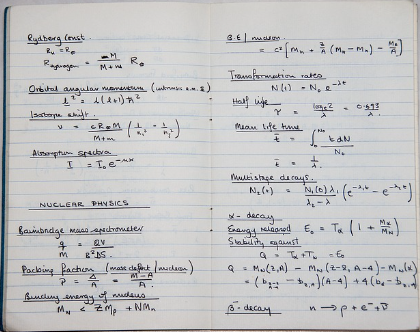 Rydberg Const.
R_H = R_∞
R_hydrogen = M / (M+m) R_∞
Orbital angular momentum (intrinsic a.m. S)
l² = l(l+1) ħ²
Isotope shift.
ν = cR_∞M / (M+m) (1/n₁² − 1/n₂²)
Absorption spectra
I = I₀ e^(−μx)
NUCLEAR PHYSICS
Bainbridge mass spectrometer
q/M = 2V / B²DS
Packing fraction (mass defect / nucleon)
P = Δ/A = (M−A)/A
Binding energy of nucleus
M_N < ZM_p + NM_n
B.E / nucleon.
= c² [ M_n + Z/A (M_H − M_n) − M_a/A ]
Transformation rates
N(t) = N₀ e^(−λt)
Half life
τ = log_e 2 / λ = 0.693 / λ.
Mean life time
t̄ = ∫₀^N₀ t dN / N₀
t̄ = 1/λ.
Multistage decays.
N₂(t) = N₁(0) λ₁ / (λ₂ − λ₁) (e^(−λ₁t) − e^(−λ₂t))
α-decay
Energy released E₀ = T_α (1 + M_α/M_N)
Stability against
Q = T_α + T_N = E₀
Q = M_N(Z,A) − M_N(Z−2, A−4) − M_N(α)
β⁻-decay n → p + e⁻ + ν̄